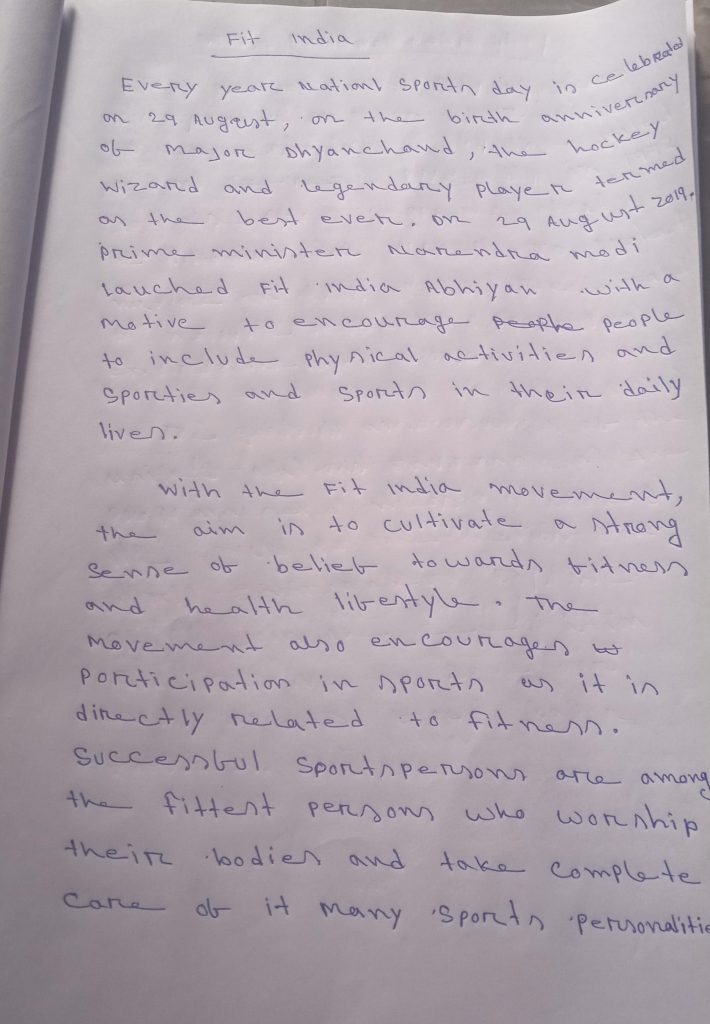 Fit India
Every year National Sports day is celebrated
on 29 August, on the birth anniversary
of Major Dhyanchand, the hockey
wizard and legendary player termed
as the best ever. on 29 August 2019.
prime minister Narendra modi
Lauched Fit india Abhiyan with a
motive to encourage people people
to include physical activities and
sporties and sports in their daily
lives.
With the Fit India movement,
the aim is to cultivate a strong
sense of belief towards fitness
and health lifestyle. The
movement also encourages
porticipation in sports as it is
directly related to fitness.
Successful sportspersons are among
the fittest persons who worship
their bodies and take complete
care of it many sports personalitie